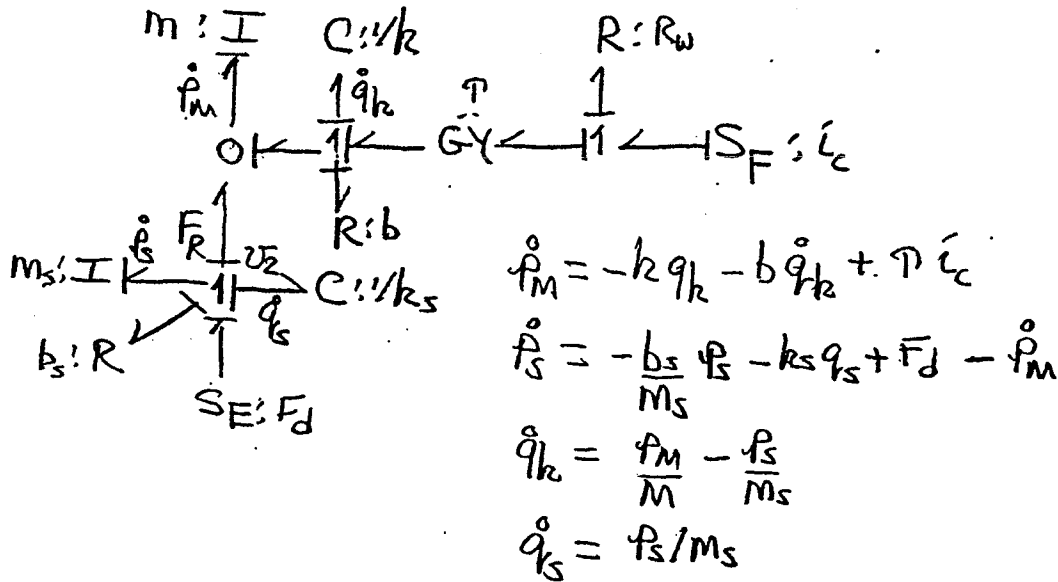 m : I C:1/k R:R_w
ṗ_M q̇_k T
0 1 GY 1 S_F : i_c
F_R R:b
m_s:I ṗ_s 1 v_2 q̇_s C:1/k_s
b_s:R
S_E:F_d
ṗ_M = -k q_k - b q̇_k + T i_c
ṗ_s = -b_s/m_s p_s - k_s q_s + F_d - ṗ_M
q̇_k = p_M/M - p_s/m_s
q̇_s = p_s/m_s